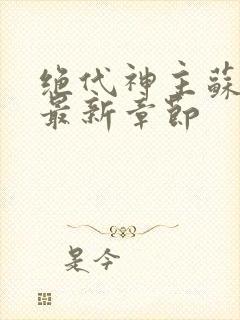 绝代神主蘇
最新章節
是今